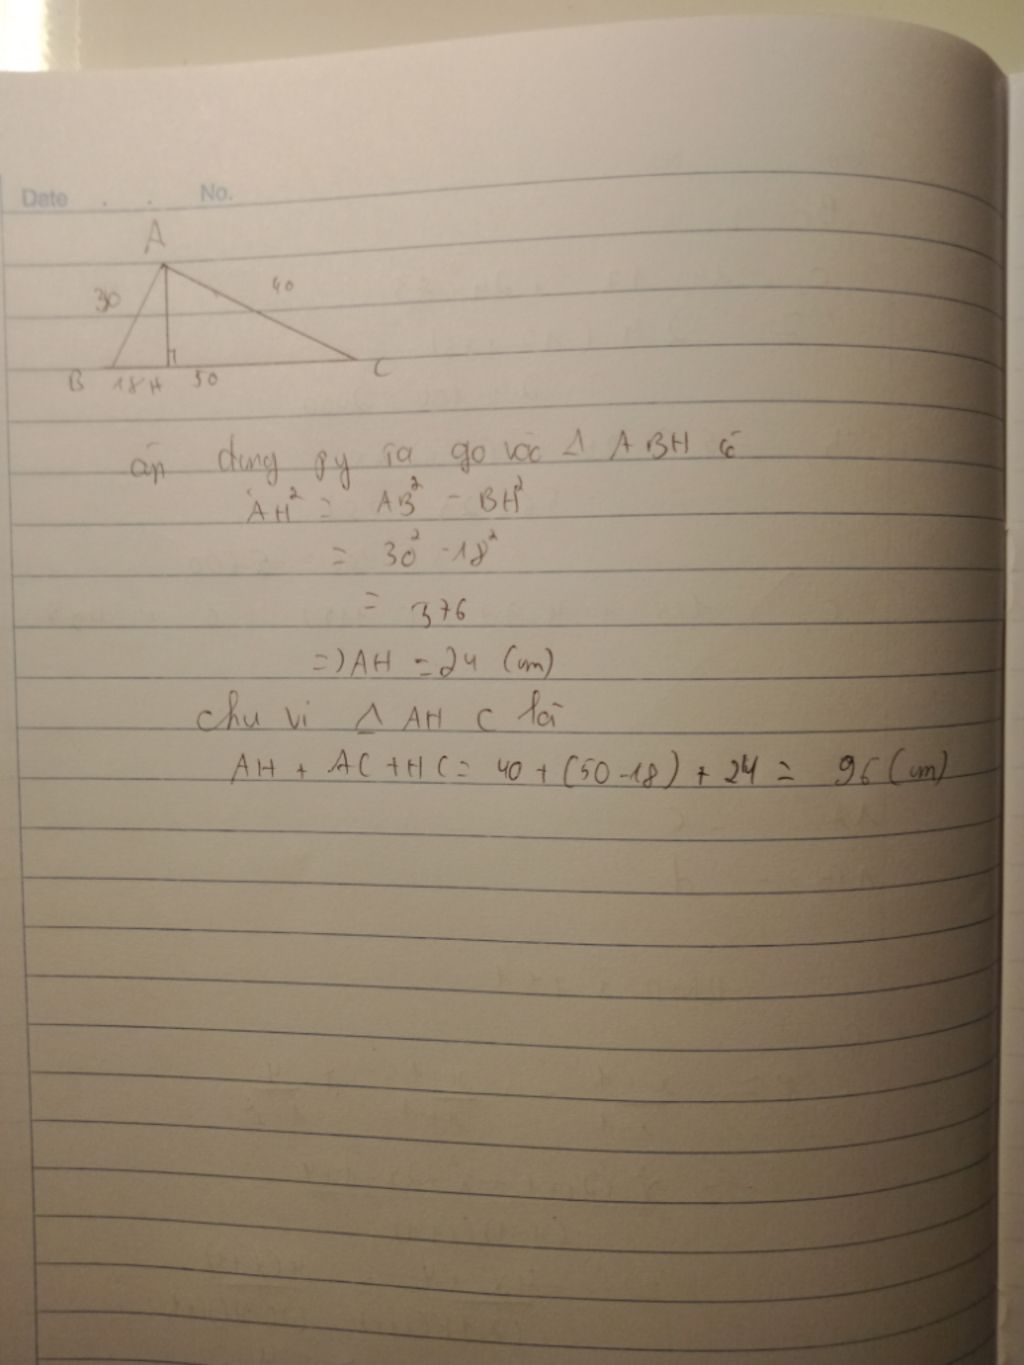 Date . . No.
A
30 40
B 18 H 50 C
áp dụng py ta go vào Δ ABH có
AH² = AB² - BH²
= 30² - 18²
= 376
=) AH = 24 (cm)
chu vi Δ AHC là
AH + AC + HC = 40 + (50-18) + 24 = 96 (cm)